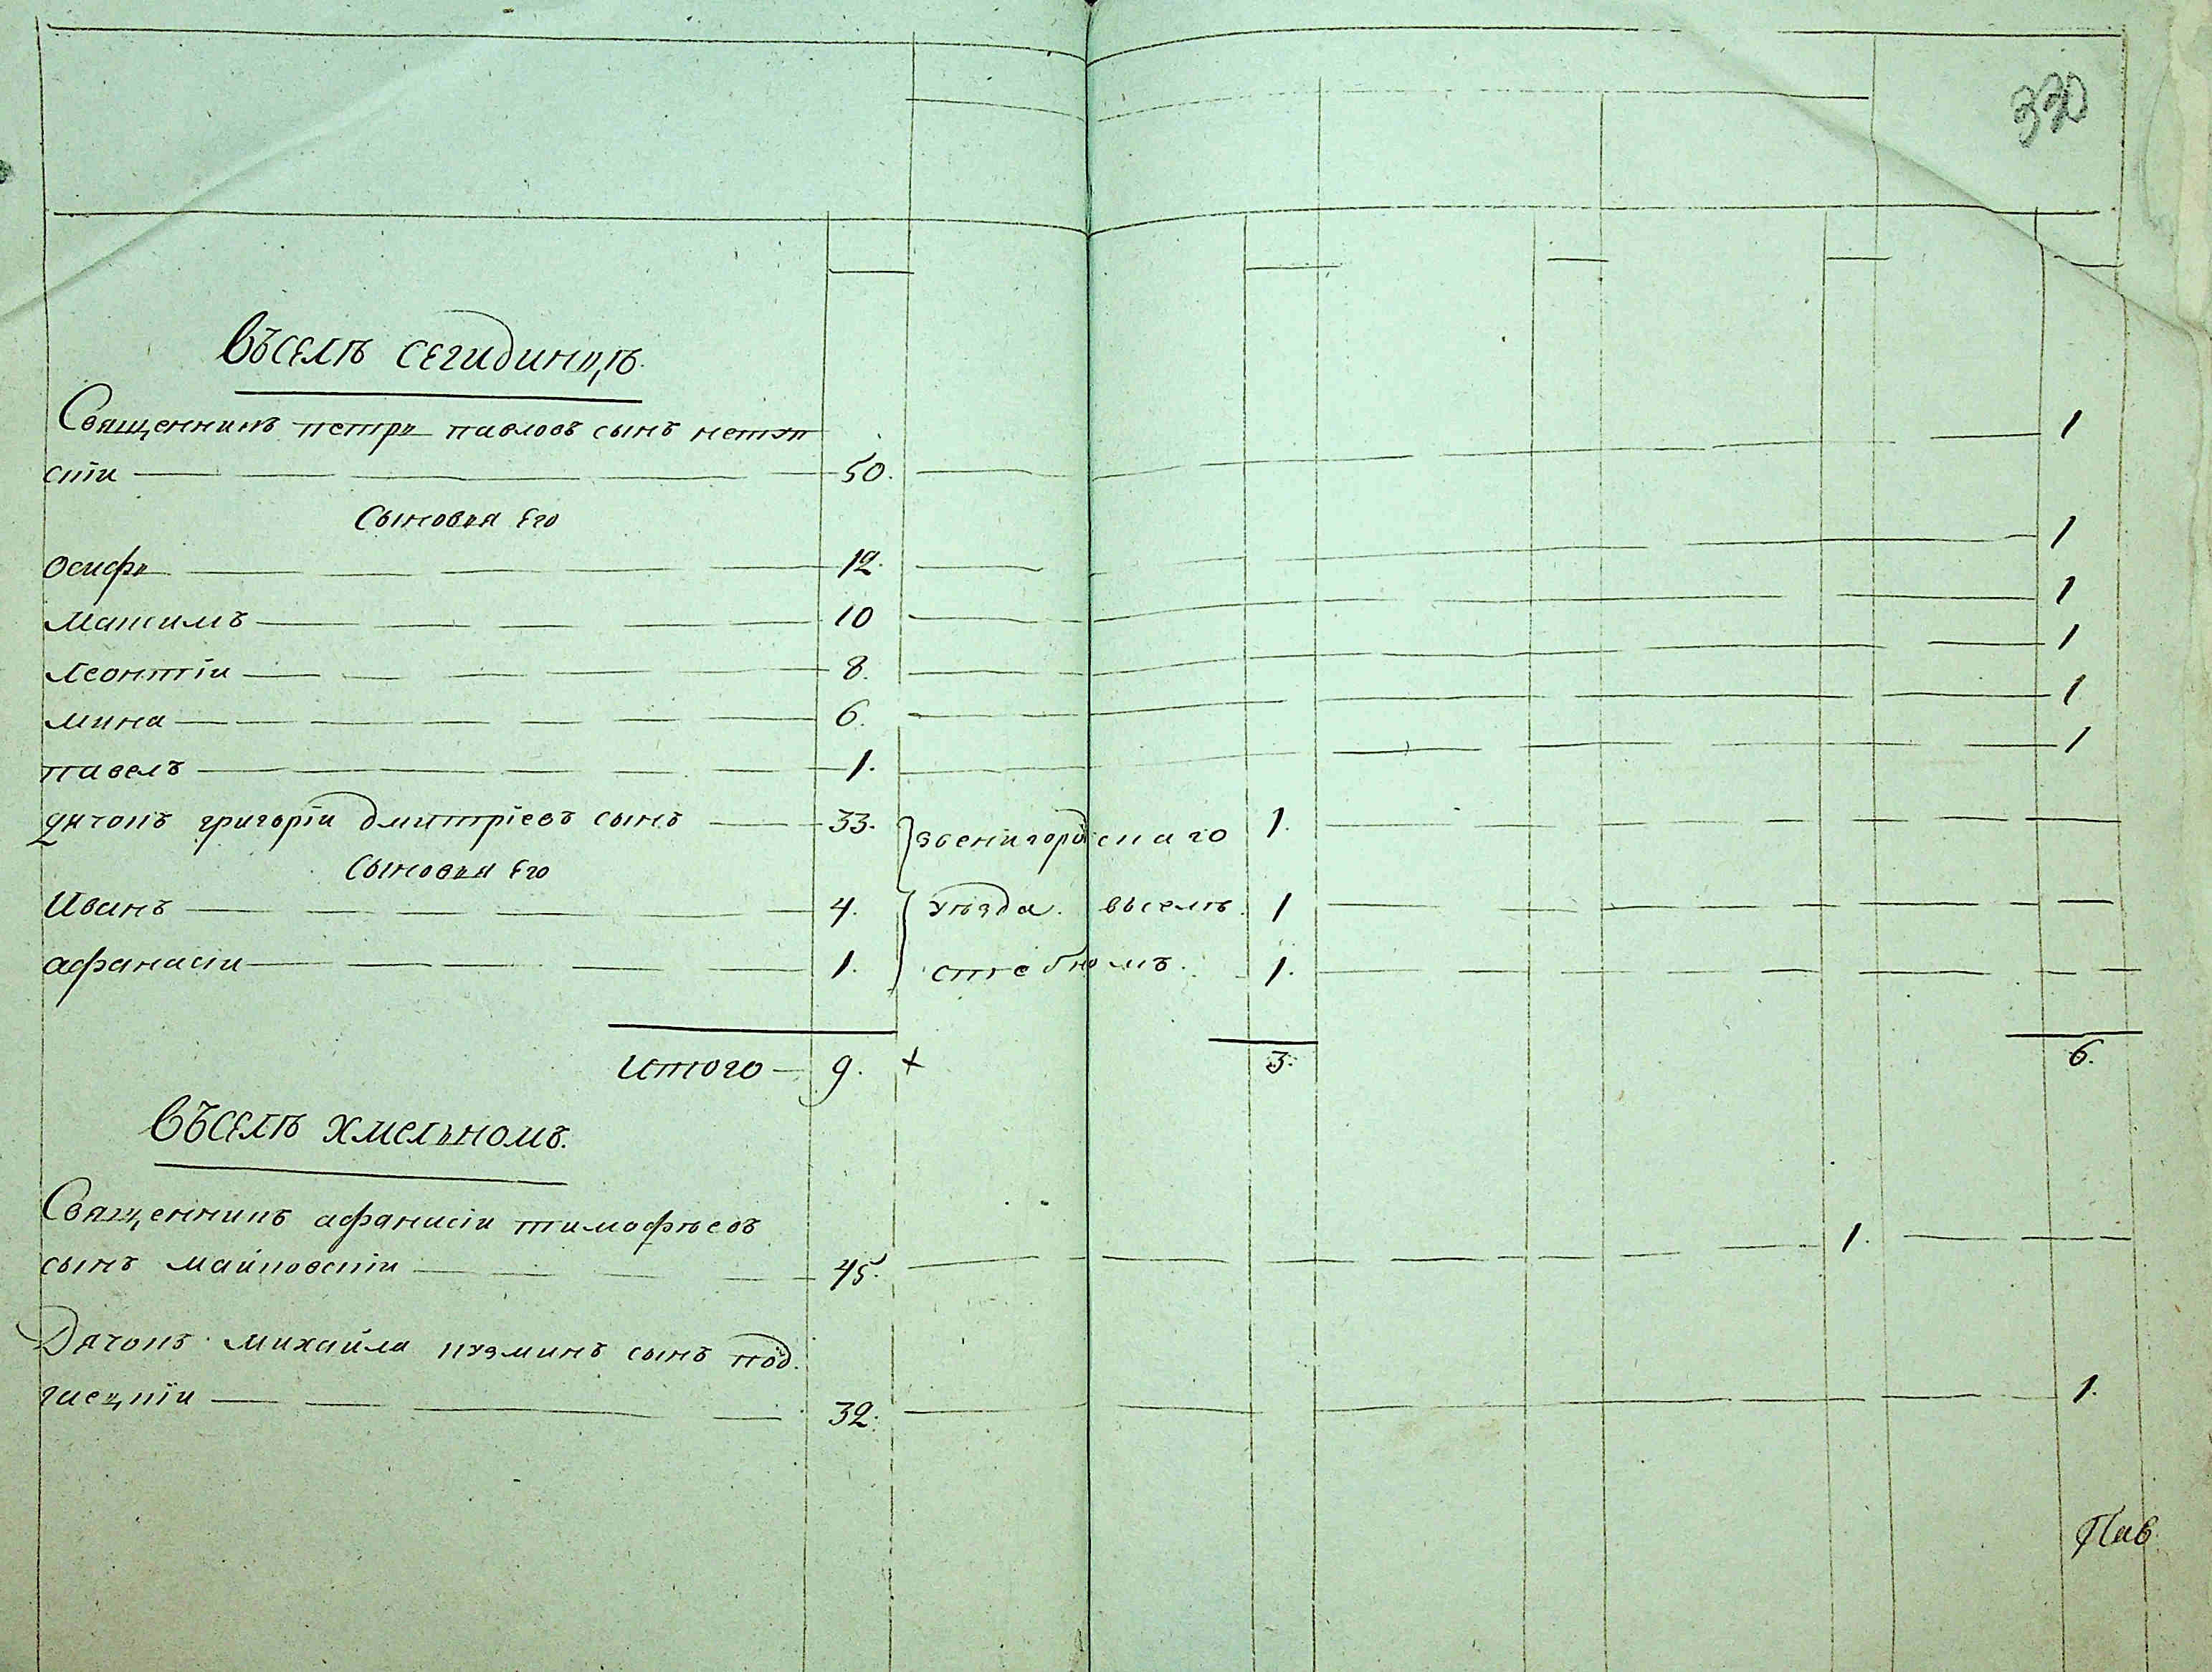 330
Въселѣ сегидинцѣ.
Священникъ петръ павловъ сынъ нетул
скiи 50. 1
Сыновья Его
осифъ 12. 1
максимъ 10 1
леонтiи 8. 1
мина 6. 1
павелъ 1. 1
дячокъ григорiи дмитрiевъ сынъ 33. звенигородскаго 1.
Сыновья Его
Иванъ 4. уѣзда. въселѣ 1
афанасiи 1. стебномъ. 1.
итого 9. + 3. 6.
Въселѣ хмельномъ.
Священникъ афанасiи тимофѣевъ
сынъ майковскiи 45. 1.
Дячокъ михайла кузминъ сынъ под
гаецкiи 32. 1.
Пав